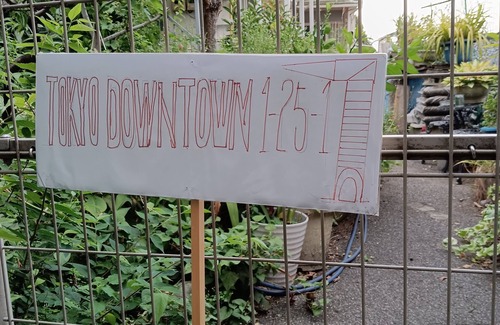 TOKYO DOWNTOWN 1-25-1